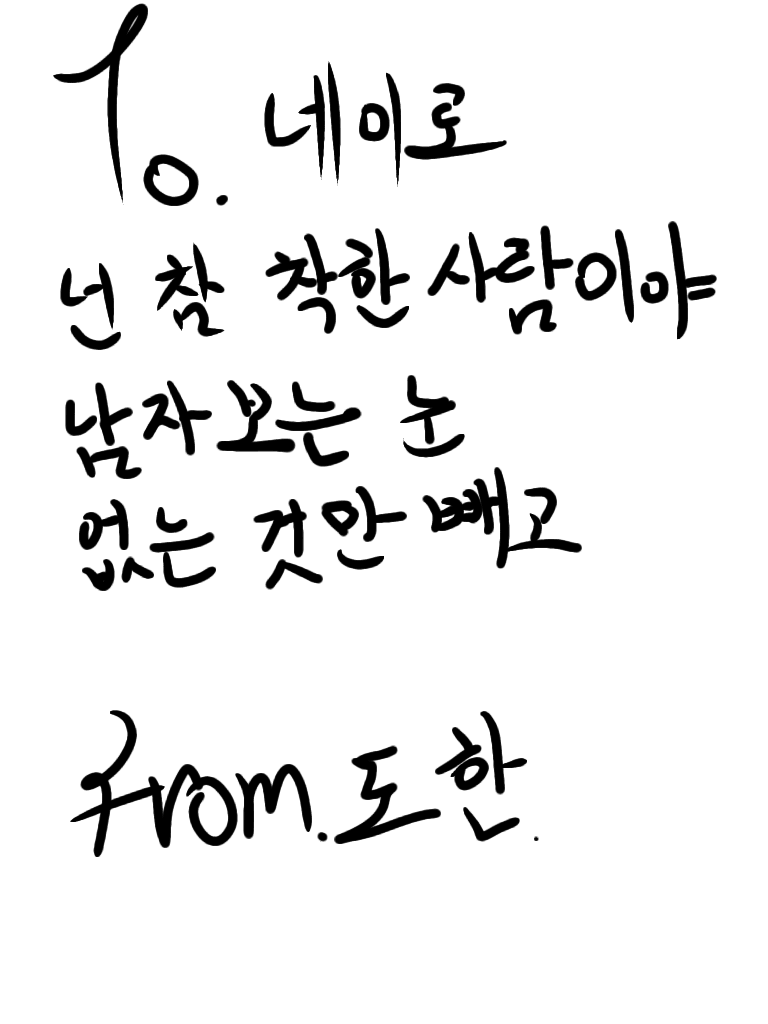 To. 네이로
넌 참 착한 사람이야
남자 보는 눈
없는 것만 빼고
From. 도한.